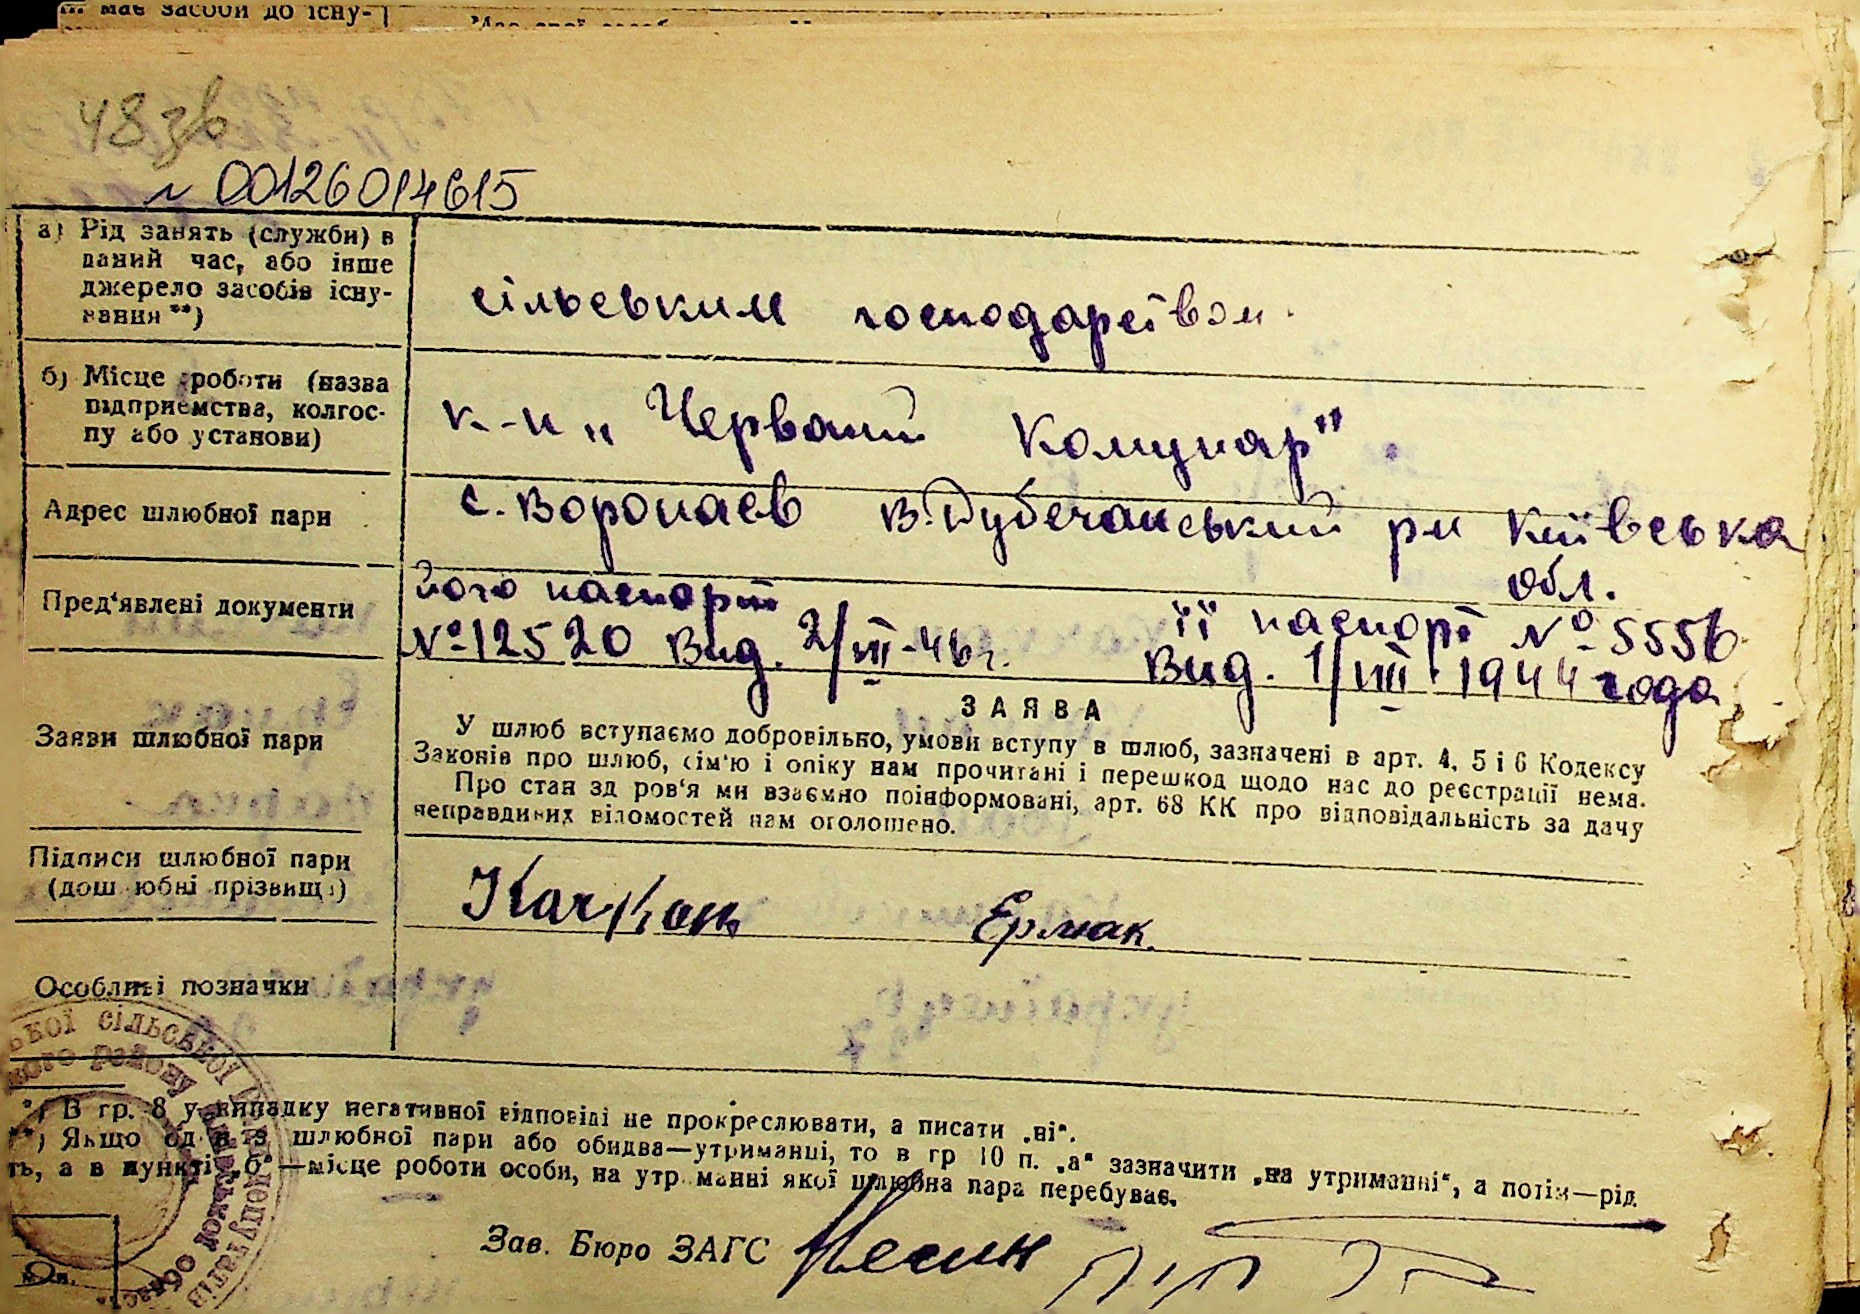 має засоби до існу-
48 зв
№ 00126014615
а) Рід занять (служби) в
даний час, або інше
джерело засобів існу-
вання **)
сільським господарством.
б) Місце роботи (назва
підприємства, колгос-
пу або установи)
к-п „Червоний Комунар"
Адрес шлюбної пари
с. Воропаєв В. Дубечанський рн Київська
обл.
Пред'явлені документи
його паспорт
№ 12520 Вид. 2/III-46г.
її паспорт № 5556
Вид. 1/VIII 1944 года
Заяви шлюбної пари
ЗАЯВА
У шлюб вступаємо добровільно, умови вступу в шлюб, зазначені в арт. 4, 5 і 6 Кодексу
Законів про шлюб, сім'ю і опіку нам прочитані і перешкод щодо нас до реєстрації нема.
Про стан здоров'я ми взаємно поінформовані, арт. 68 КК про відповідальність за дачу
неправдивих відомостей нам оголошено.
Підписи шлюбної пари
(дошлюбні прізвища)
Ермак.
Особливі позначки
*) В гр. 8 у випадку негативної відповіді не прокреслювати, а писати „ні".
**) Якщо один із шлюбної пари або обидва—утриманці, то в гр 10 п. „а" зазначити „на утриманні", а потім—рід
ть, а в пункті „б"—місце роботи особи, на утриманні якої шлюбна пара перебуває.
Зав. Бюро ЗАГС
сільської Ради депутатів
району Київської області